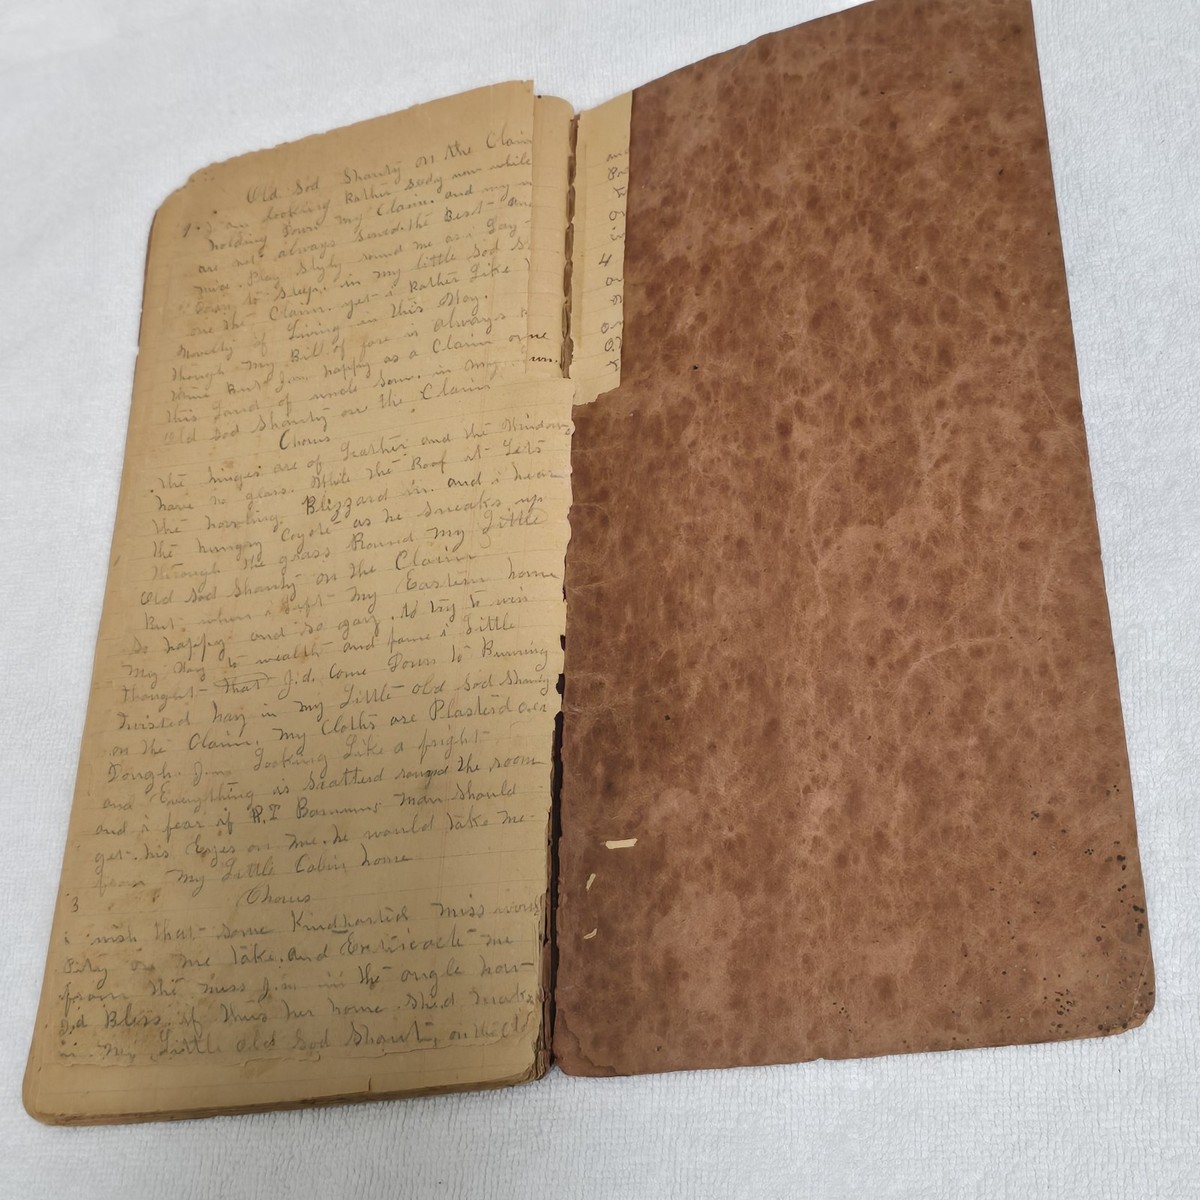 Old Sod Shanty on the Claim
1. I am looking Rather Seedy now while
holding Down my Claim. and my
are not always Served the Best and
mice. Play Slyly round me as i Lay
Down to Sleep. in my little Sod
on the Claim. yet i Rather Like
Novelty of Living in this Way.
though my Bill of fare is always
but I,m happy as a Claim
this Land of uncle Sam. in my
Old Sod Shanty on the Claim
Chorus
the hinges are of Leather and the Windows
have no glass. While the Roof it Lets
the howling Blizzard in. and i hear
the hungry Coyote as he Sneaks up
through the grass Round my Little
Old Sod Shanty on the Claim
But when i Left my Eastern home
So happy and so gay. to try to win
My Way to wealth and fame i Little
thought that I,d. Come Down to Burning
twisted hay in my Little old Sod Shanty
on the Claim, my Cloths are Plasterd over
Dough. I,m Looking Like a fright
and Everything is Scatterd round the room
and i fear if P.T Barnums man Should
get. his Eyes on me. he would take me
from my Little Cabin home
3
Chorus
i wish that some Kindharted Miss would
Pity on me take. and me
from the mess I,m in the angle how
I,d Bless if this her home. She,d make
in my Little old Sod Shanty on the
and
4